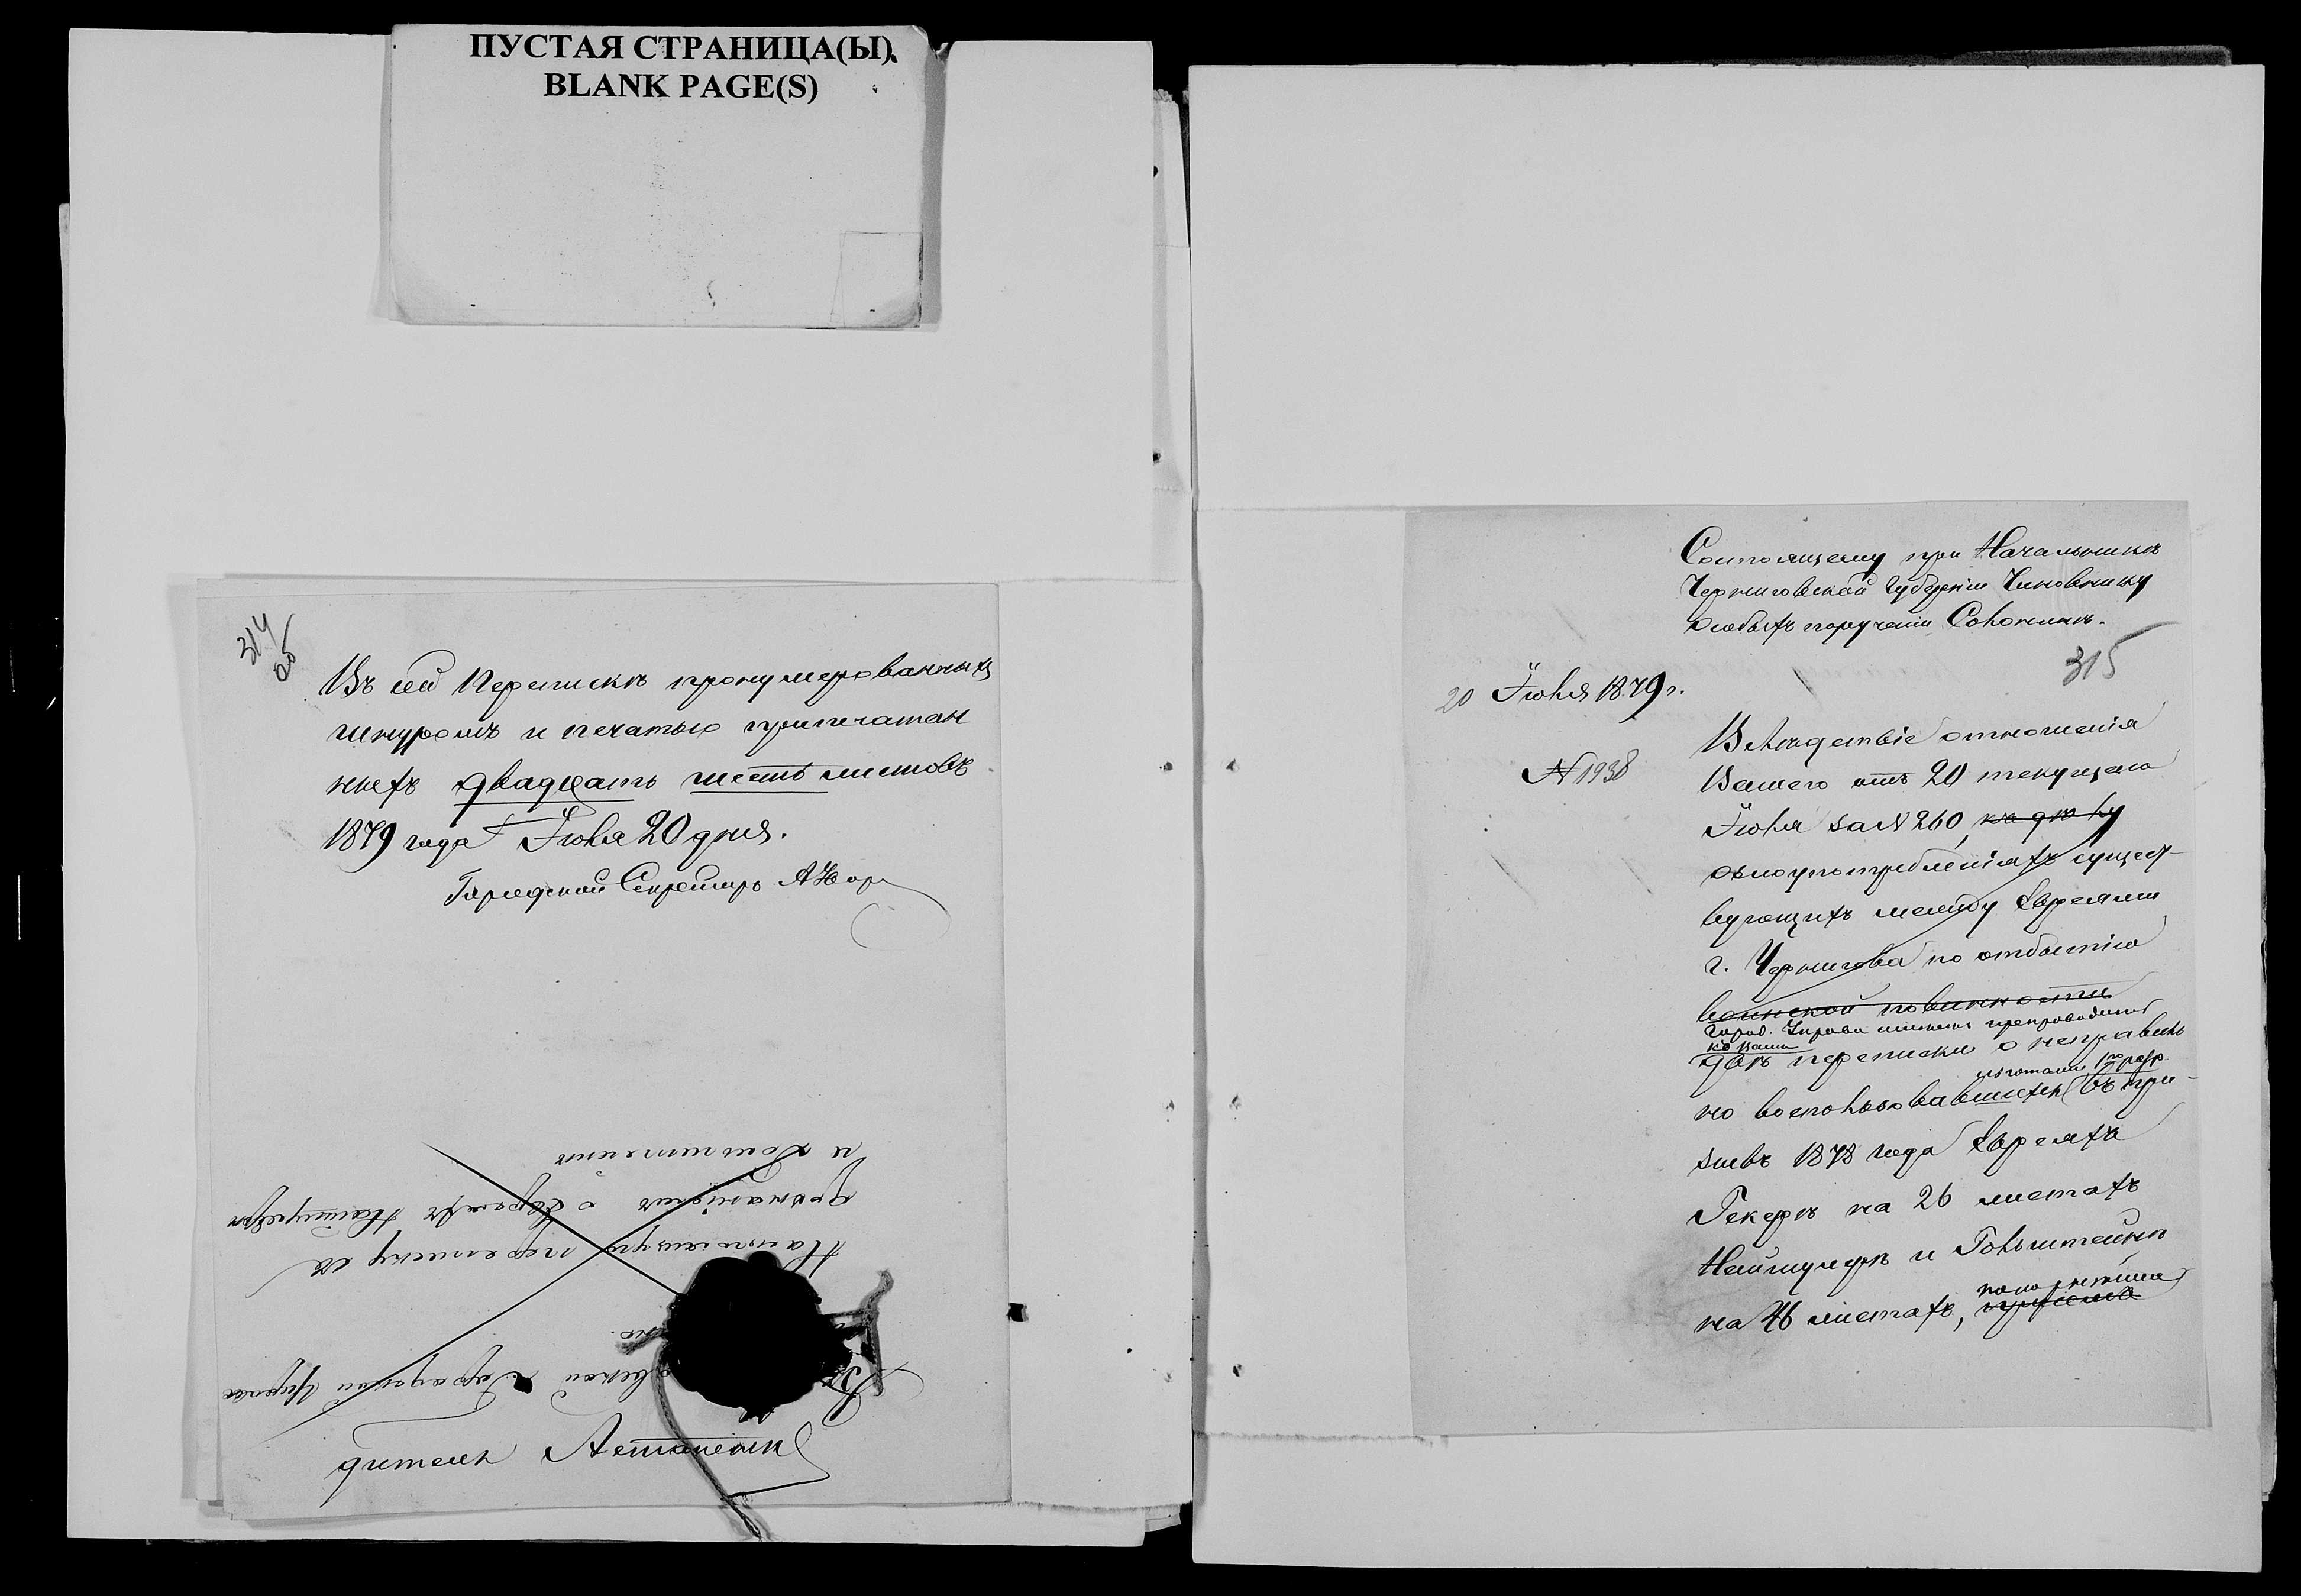 ПУСТАЯ СТРАНИЦА(Ы).
BLANK PAGE(S)
314
об
Въ сей Перепискѣ пронумерованныхъ
шнуромъ и печатью припечатан
ныхъ двадцать шесть листовъ
1879 года Іюля 20 дня.
Городской Секретарь
и Гольштейнѣ
о Евреяхъ Наймулерѣ
переписку съ
Городской Управы
дитель
Состоящему при Начальникѣ
Черниговской Губерніи Чиновнику
Особыхъ порученій
315
20 Іюля 1879 г.
N 1938
Вслѣдствіе отношенія
Вашего отъ 20 текущаго
Іюля за N 260, къ дѣлу
о злоупотребленіяхъ сущест-
вующихъ между Евреями
г. Чернигова по отбытію
воинской повинности
Город. Управа имѣетъ препроводить
къ Вамъ
двѣ переписки о неправиль
льготами 1го разр.
но воспользовавшихся въ при-
зывъ 1878 года Евреяхъ
Гекерѣ на 26 листахъ
Наймулерѣ и Гольштейнѣ
на 46 листахъ,
покорнѣйше